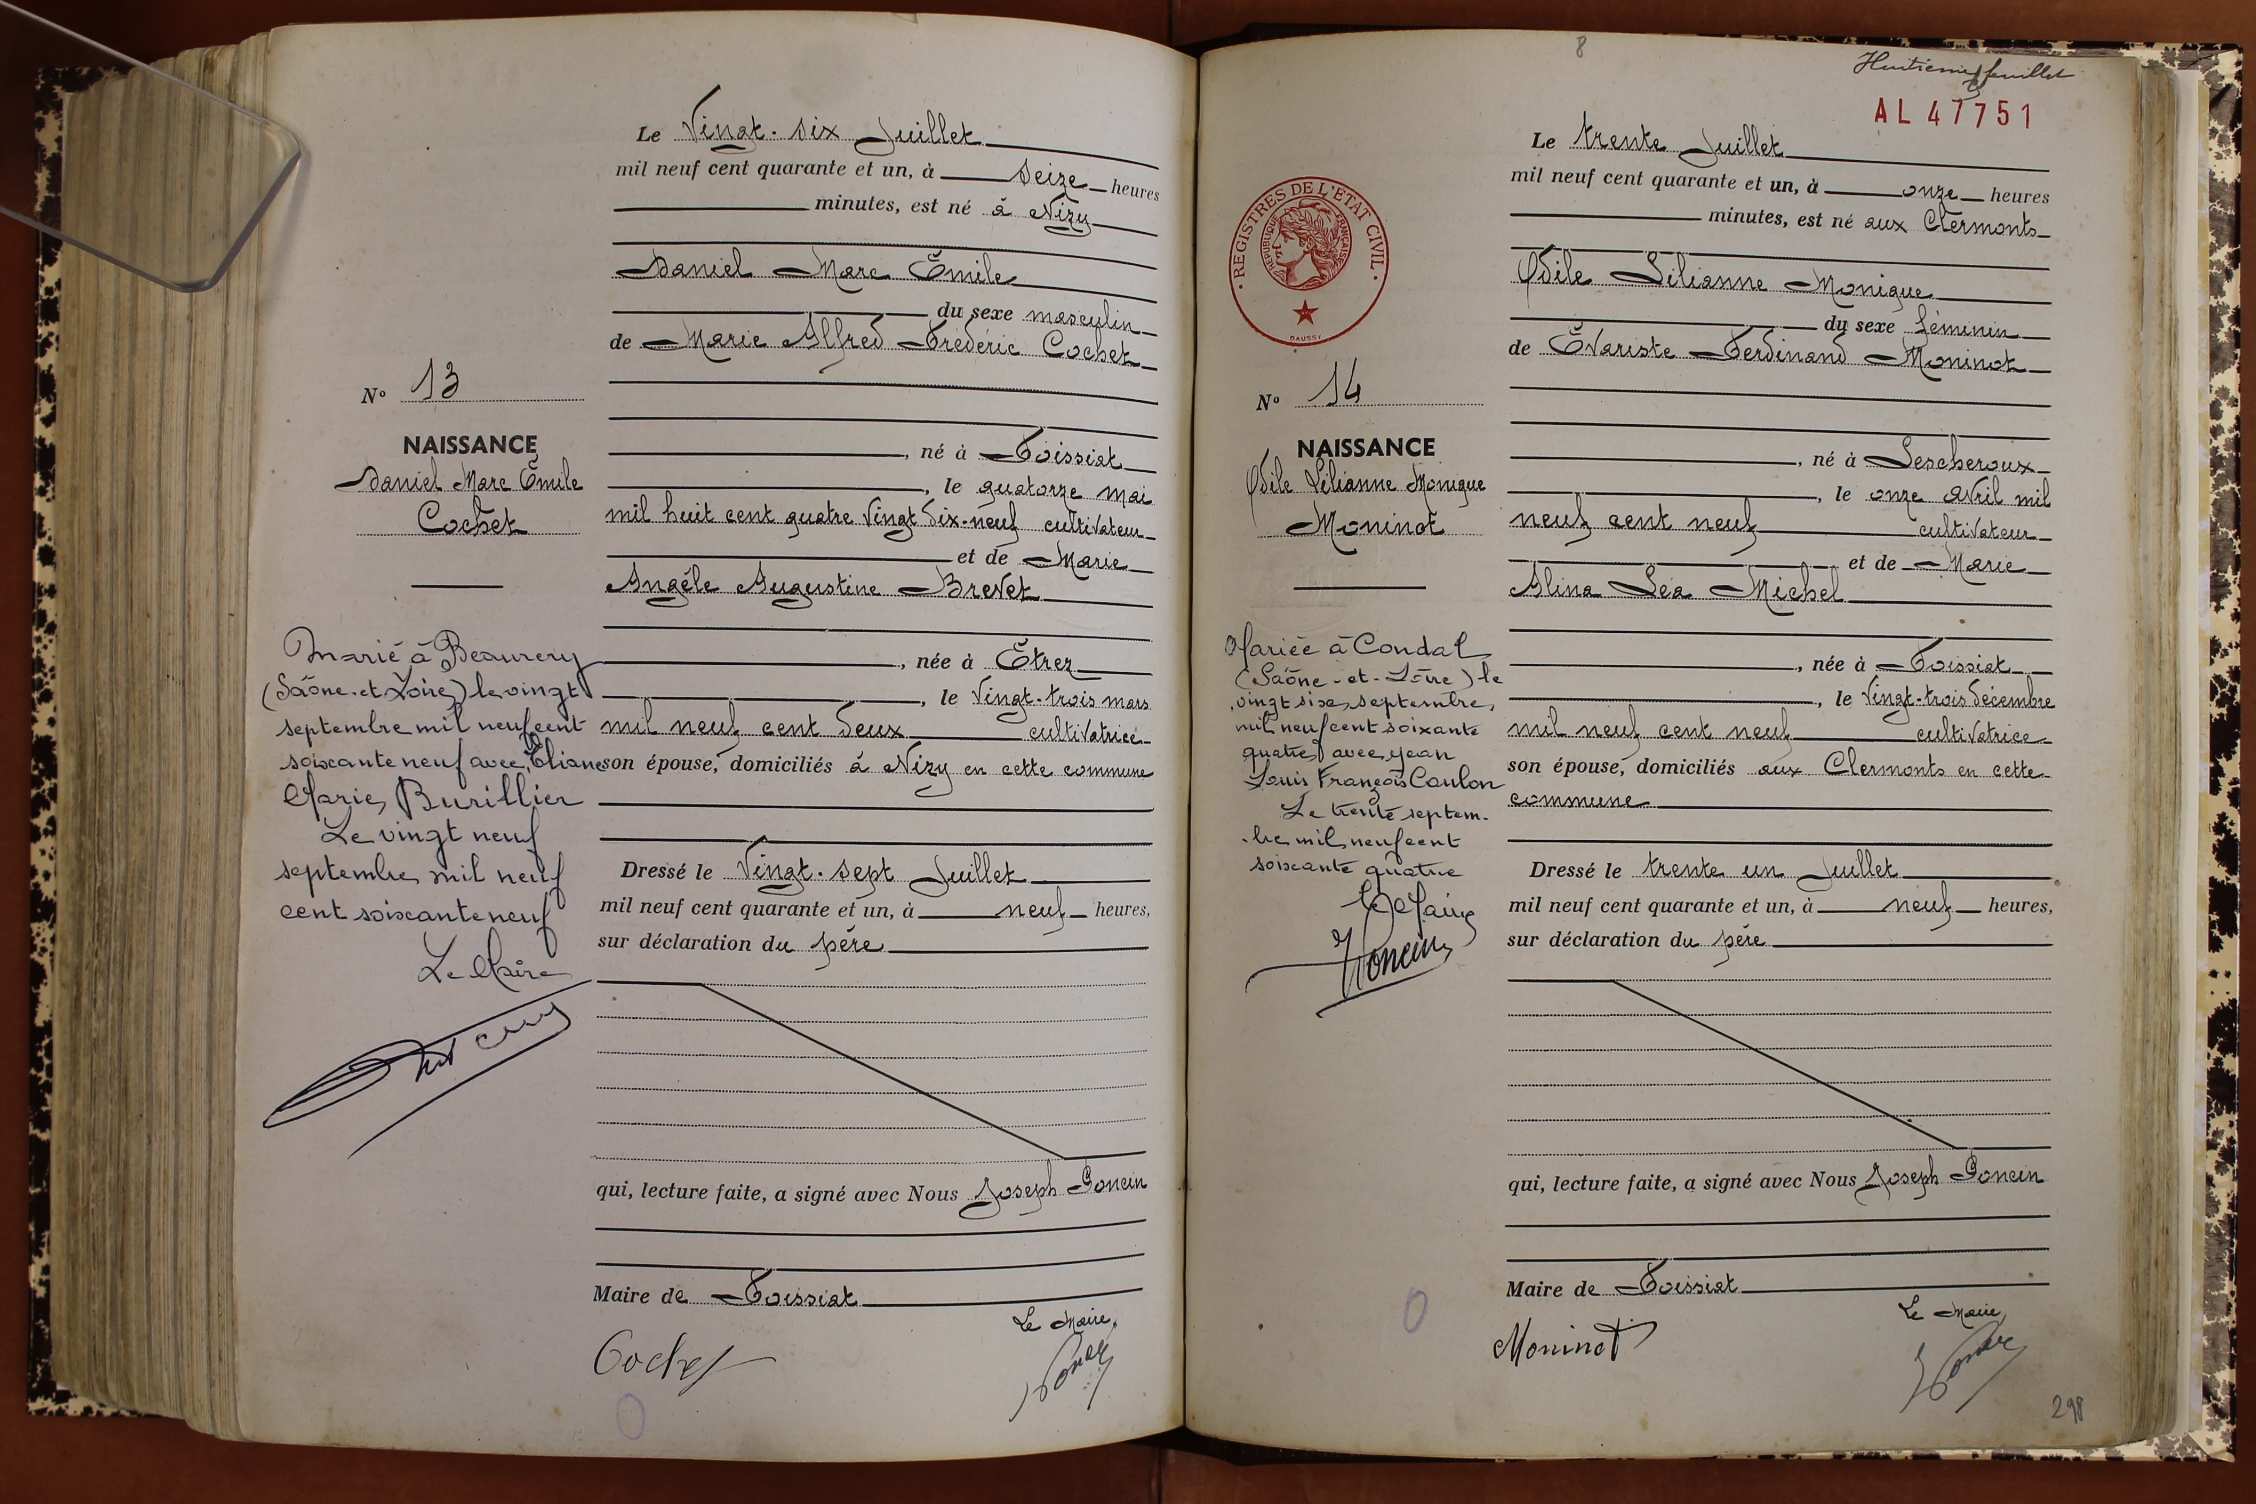 Le Vingt-six Juillet
mil neuf cent quarante et un, à seize heures
minutes, est né à Nizy
Daniel Marc Émile
du sexe masculin
de Marie Alfred Frédéric Cochet
N° 13
NAISSANCE
Daniel Marc Émile
Cochet
, né à Foissiat
, le quatorze mai
mil huit cent quatre vingt dix-neuf cultivateur
et de Marie
Angèle Augustine Brevet
, née à Étrez
, le Vingt-trois mars
mil neuf cent deux cultivatrice
son épouse, domiciliés à Nizy en cette commune
Marié à Beaurery
(Saône-et-Loire) le vingt
septembre mil neuf cent
soixante neuf avec Eliane
Marie Burillier
Le vingt neuf
septembre mil neuf
cent soixante neuf
Le Maire
Dressé le Vingt-sept Juillet
mil neuf cent quarante et un, à neuf heures,
sur déclaration du père
qui, lecture faite, a signé avec Nous Joseph Poncin
Maire de Foissiat
Le Maire,
Cochet
8
Huitième feuillet
AL 47751
REGISTRES DE L'ETAT CIVIL
REPUBLIQUE FRANÇAISE
DAUSSY
Le trente Juillet
mil neuf cent quarante et un, à onze heures
minutes, est né aux Clermonts
Odile Lilianne Monique
du sexe féminin
de Évariste Ferdinand Moninot
N° 14
NAISSANCE
Odile Lilianne Monique
Moninot
, né à Lescheroux
, le onze Avril mil
neuf cent neuf cultivateur
et de Marie
Alina Léa Michel
, née à Foissiat
, le Vingt-trois décembre
mil neuf cent neuf cultivatrice
son épouse, domiciliés aux Clermonts en cette
commune
Mariée à Condal
(Saône-et-Loire) le
vingt six septembre
mil neuf cent soixante
quatre avec Jean
Louis François Coulon
Le trente septem-
-bre mil neuf cent
soixante quatre
Le Maire
Poncin
Dressé le trente un Juillet
mil neuf cent quarante et un, à neuf heures,
sur déclaration du père
qui, lecture faite, a signé avec Nous Joseph Poncin
Maire de Foissiat
Le Maire,
Moninot
298